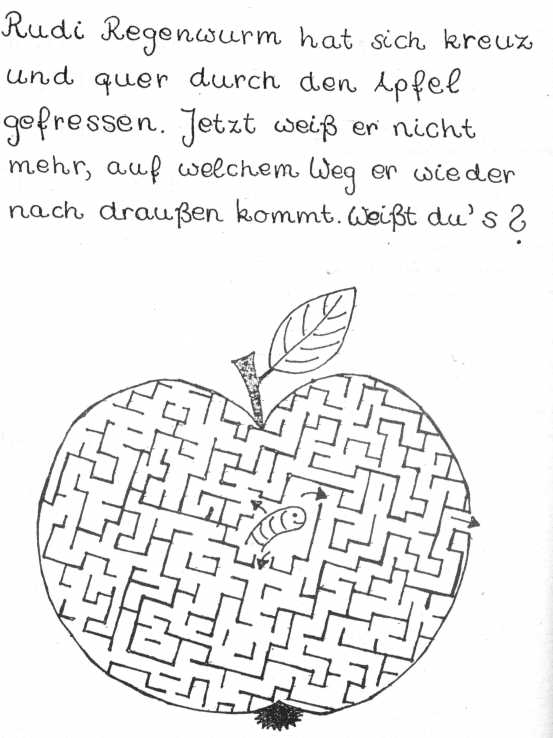 Rudi Regenwurm hat sich kreuz
und quer durch den Apfel
gefressen. Jetzt weiß er nicht
mehr, auf welchem Weg er wieder
nach draußen kommt. Weißt du's?